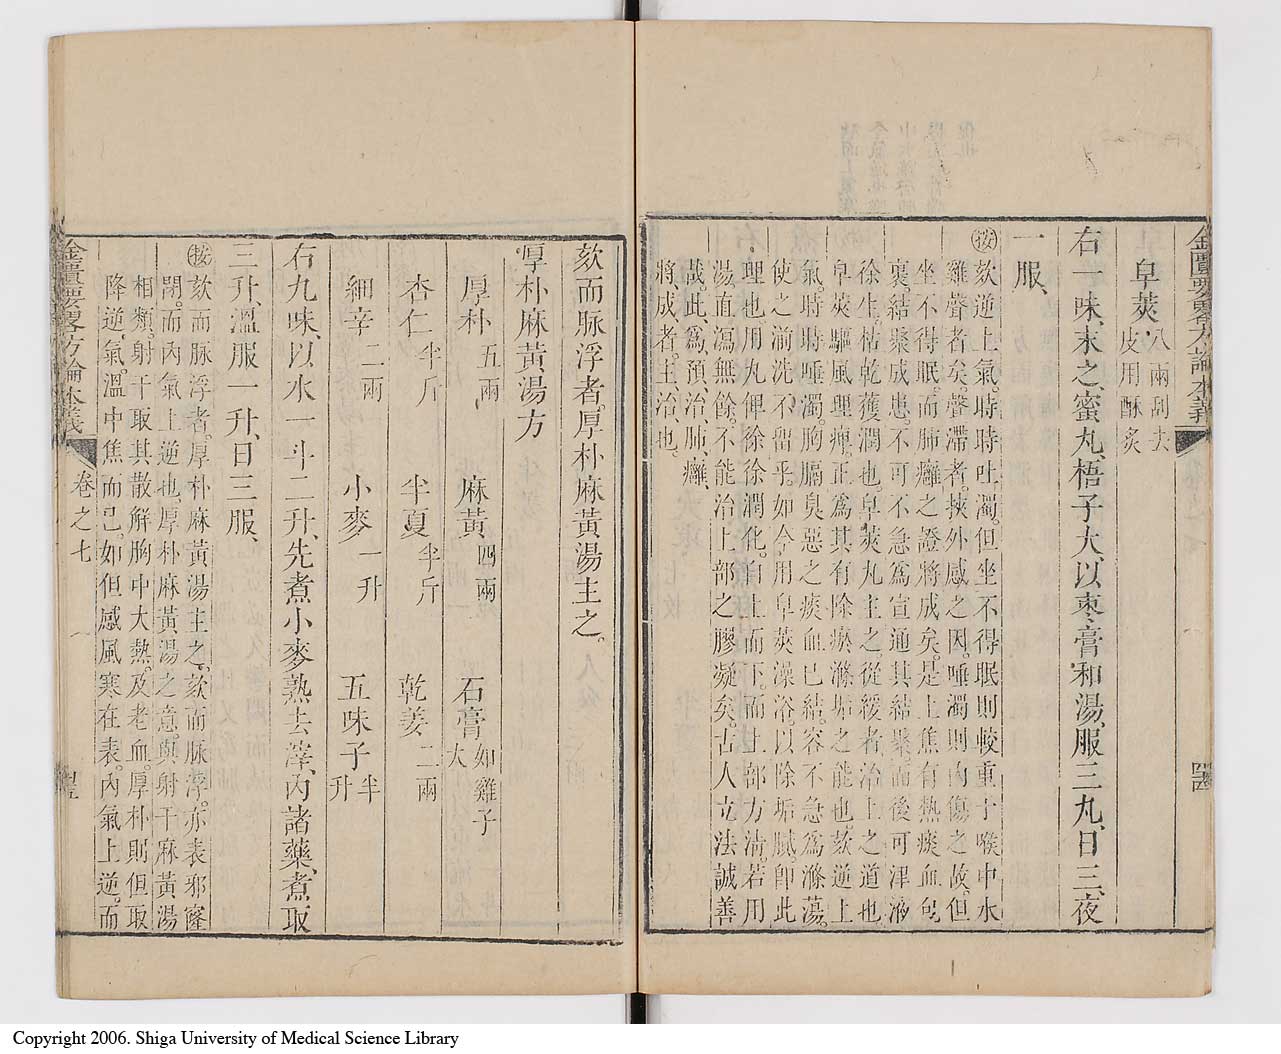 金匱要畧方論本義
皁莢 八兩刮去皮用酥炙
右一味、末之、蜜丸、梧子大、以棗膏和湯、服三丸、日三、夜
一服、
按欬逆上氣。時時吐濁。但坐不得眠。則較重于喉中水
雞聲者矣。聲滯者挾外感之因。唾濁則內傷之故。但
坐不得眠。而肺癰之證將成矣。是上焦有熱痰血包
裹結聚成患。不可不急爲宣通其結聚。而後可津液
徐生。枯乾獲潤也。皁莢丸主之。從緩者治上之道也
皁莢驅風理痺。正爲其有除瘀滌垢之能也。欬逆上
氣。時時唾濁。胸膈臭惡之痰血已結。容不急爲滌蕩。
使之湔洗不留乎。如今用皁莢澡浴。以除垢膩。卽此
理也。用丸俾徐徐潤化。自上而下。而上部方清。若用
湯。直瀉無餘。不能治上部之膠凝矣。古人立法誠善
哉。此爲預治肺癰、
將成者。主治也。
欬而脉浮者。厚朴麻黃湯主之。
厚朴麻黃湯方
厚朴五兩 麻黃四兩 石膏如雞子大
杏仁半斤 半夏半斤 乾姜二兩
細辛二兩 小麥一升 五味子半升
右九味、以水一斗二升、先煮小麥熟、去滓、內諸藥、煮、取
三升、溫服一升、日三服、
按欬而脉浮者。厚朴麻黃湯主之。欬而脉浮。亦表邪窿
閉。而內氣上逆也。厚朴麻黃湯之意。與射干麻黃湯
相類。射干取其散解胸中大熱。及老血。厚朴則但取
降逆氣。溫中焦而已。如但感風寒在表。內氣上逆。而
金匱要畧方論本義
卷之七
Copyright 2006. Shiga University of Medical Science Library